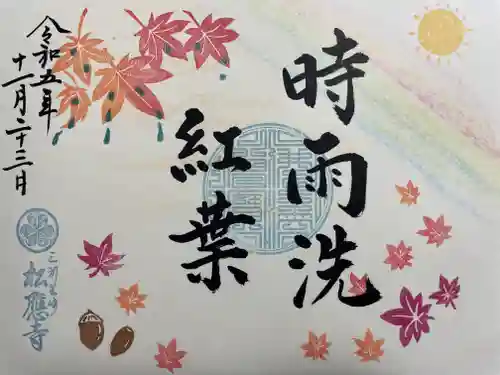 時雨洗
紅葉
令和五年
十一月二十三日
松應寺